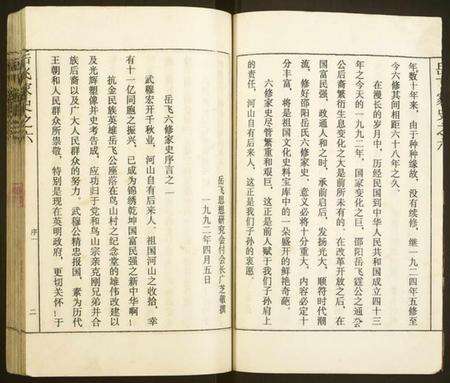 岳氏家史之六
年数十年来，由于种种缘故，没有续修，继一九二四年五修至
今六修其间相距六十八年之久。
在漫长的岁月中，历经民国到中华人民共和国成立四十三
年之今天的一九九二年，国家变化之巨，邵阳岳飞霆公之通公
公后裔繁衍生息变化之大是前所未有的，在改革开放之后，在
国富民强，政通人和之时，承前启后，发扬光大，顺符时代潮
流，修好邵阳岳氏六修家史，意义必将十分重大，内容必定十
分丰富，将是祖国文化史料宝库中的一朵盛开的鲜艳奇葩。
六修家史尽管繁重和艰巨，这正是前人赋于我们子孙肩上
的责任，河山自有后来人，这正是我们子孙的衷愿
岳飞思想研究会付会长广芝敬撰
一九九二年四月五日
岳飞六修家史序言之一
武穆宏开千秋业，河山自有后来人，祖国河山之收拾，幸
有十一亿同胞之振兴，已成为锦绣乾坤国富民强之新中华啊！
抗金民族英雄岳飞公座落在鸟山村之纪念堂的雄伟改建以
及光辉塑像并史考告成，应功归于党和鸟山宗亲克刚兄弟并合
族后裔以及广大人民群众的努力。武穆公精忠报国，素为历代
王朝和人民群众所崇敬，特别是现在英明政府，更切关怀！于
岳氏家史之六
序一
二